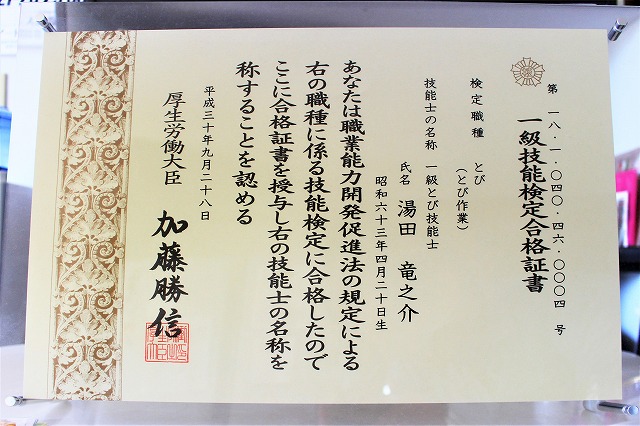 第 一八・一・〇四〇・四六・〇〇〇四 号
一級技能検定合格証書
検定職種 とび
(とび作業)
技能士の名称 一級とび技能士
氏名 湯田 竜之介
昭和六十三年四月二十日生
あなたは職業能力開発促進法の規定による
右の職種に係る技能検定に合格したので
ここに合格証書を授与し右の技能士の名称を
称することを認める
平成三十年九月二十八日
厚生労働大臣 加藤勝信